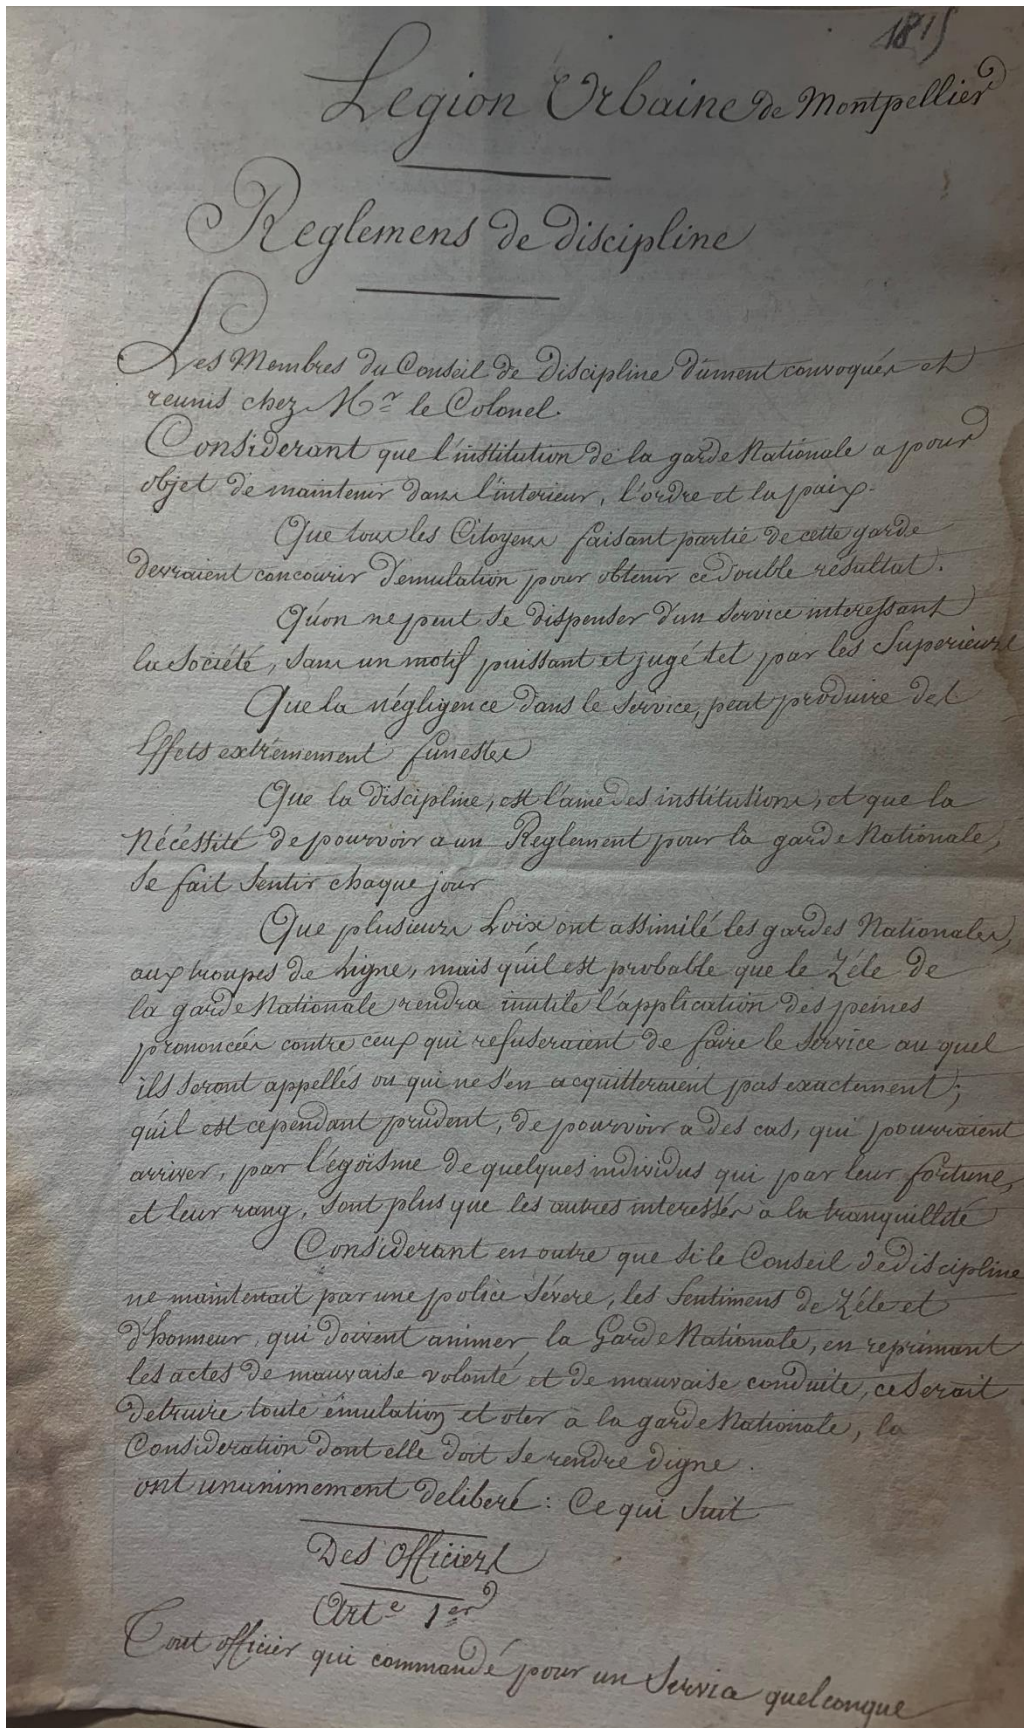 1815
Legion Urbaine de Montpellier
Reglemens de discipline
Les Membres du Conseil de Discipline dument convoqués et
reunis chez Mr le Colonel.
Considerant que l'institution de la garde Nationale a pour
objet de maintenir dans l'interieur, l'ordre et la paix.
Que tous les Citoyens faisant partie de cette garde
devraient concourir d'emulation pour obtenir ce double résultat.
Qu'on ne peut se dispenser d'un service interessant
la Société, sans un motif puissant et jugé tel par les Superieurs
Que la négligence dans le service, peut produire des
Effets extrêmement funestes
Que la discipline, est l'ame des institutions, et que la
Nécéssité de pourvoir a un Reglement pour la garde Nationale,
se fait sentir chaque jour
Que plusieurs Loix ont assimilé les gardes Nationales,
aux troupes de Ligne, mais qu'il est probable que le Zéle de
la garde Nationale rendra inutile l'application des peines
prononcées contre ceux qui refuseraient de faire le Service au quel
ils seront appellés ou qui ne s'en acquitteraient pas exactement;
qu'il est cependant prudent, de pourvoir a des cas, qui pourraient
arriver, par l'égoïsme de quelques individus qui par leur fortune,
et leur rang, sont plus que les autres interessés a la tranquillité
Considerant en outre que si le Conseil de discipline
ne maintenait par une police sévere, les Sentimens de Zéle et
d'honneur, qui doivent animer, la Garde Nationale, en reprimant
les actes de mauvaise volonté et de mauvaise conduite, ce serait
detruire toute émulation et oter à la garde Nationale, la
Consideration dont elle doit se rendre digne.
ont unanimement deliberé : Ce qui Suit
Des Officiers
Arte 1er
Tout officier qui commandé pour un Service quelconque